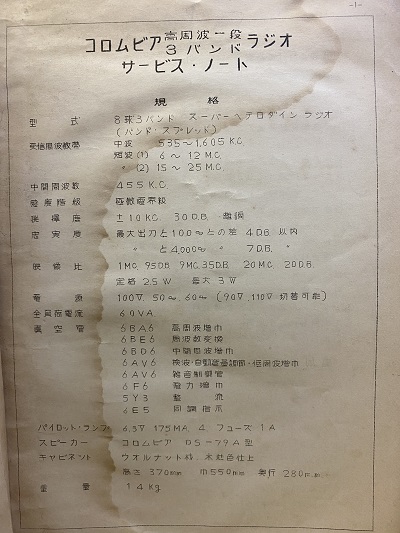 -1-
コロムビア 高周波一段 3バンド ラジオ
サービス・ノート
規格
型式 8球3バンド スーパーヘテロダインラジオ
(バンド・スプレッド)
受信周波数帯 中波 535~1,605 K.C.
短波(1) 6~12 M.C.
〃 (2) 15~25 M.C.
中間周波数 455 K.C.
感度階級 極微電界級
選擇度 ±10KC. 30DB. 離調
忠実度 最大出力と100~との差 4DB.以内
〃 と4,000~ 〃 7DB. 〃
映像比 1MC.95DB. 9MC.35DB. 20MC. 20DB.
定格 2.5W 最大 3W
電源 100V. 50~. 60~ (90V,110V 切替可能)
60VA
真空管 6BA6 高周波増巾
6BE6 周波数変換
6BD6 中間周波増巾
6AV6 検波・自動音量調節・低周波増巾
6AV6 雑音制御管
6F6 電力増巾
5Y3 整流
6E5 同調指示
パイロット・ランプ 6.3V 175MA. 4. フューズ 1A
スピーカー コロムビア DS-79A型
キャビネット ウオルナット材. 木地色仕上
高さ 370mm 巾 550mm 奥行 280mm
重量 14kg